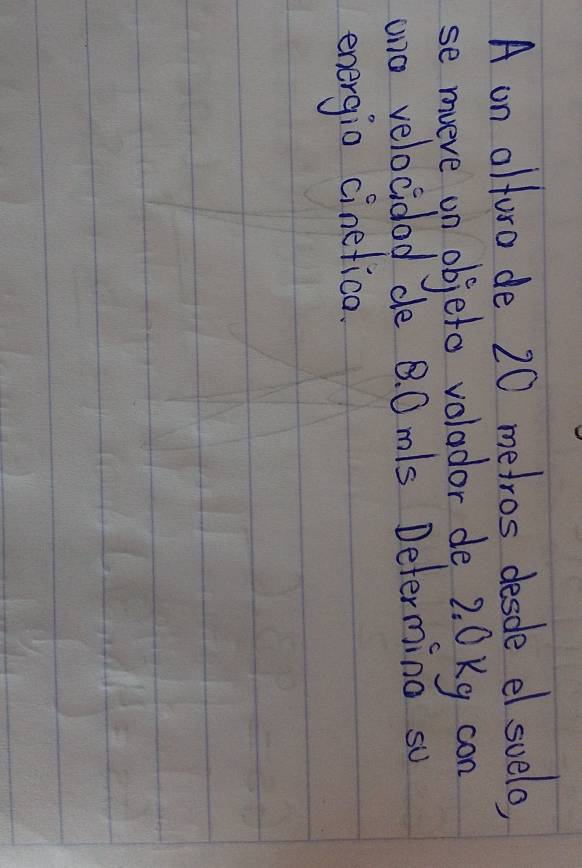 A un altura de 20 metros desde el suelo,
se mueve un objeto volador de 2.0 Kg con
una velocidad de 8.0 m/s Determina su
energia cinetica.